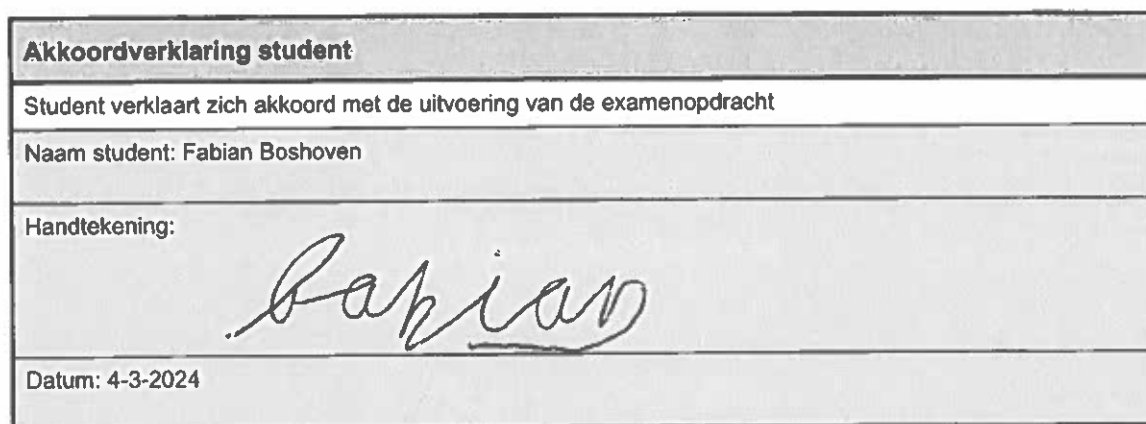 Akkoordverklaring student
Student verklaart zich akkoord met de uitvoering van de examenopdracht
Naam student: Fabian Boshoven
Handtekening:
Fabian
Datum: 4-3-2024